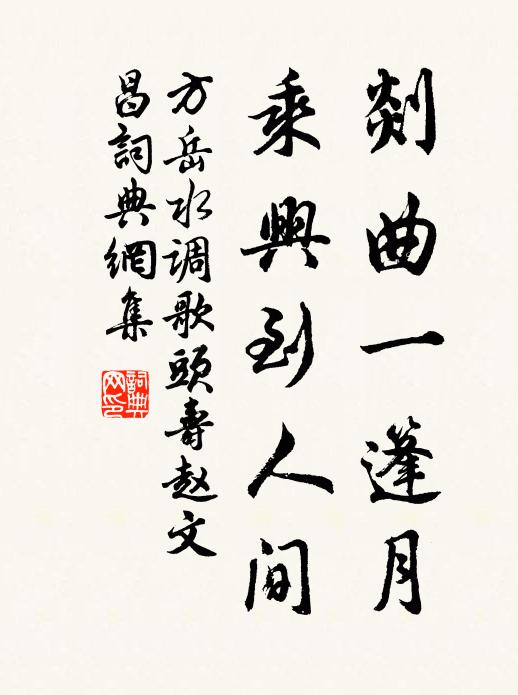 剡曲一篷月
乘興到人间
方岳水调歌頭壽赵文
昌詞典網集
詞典网印